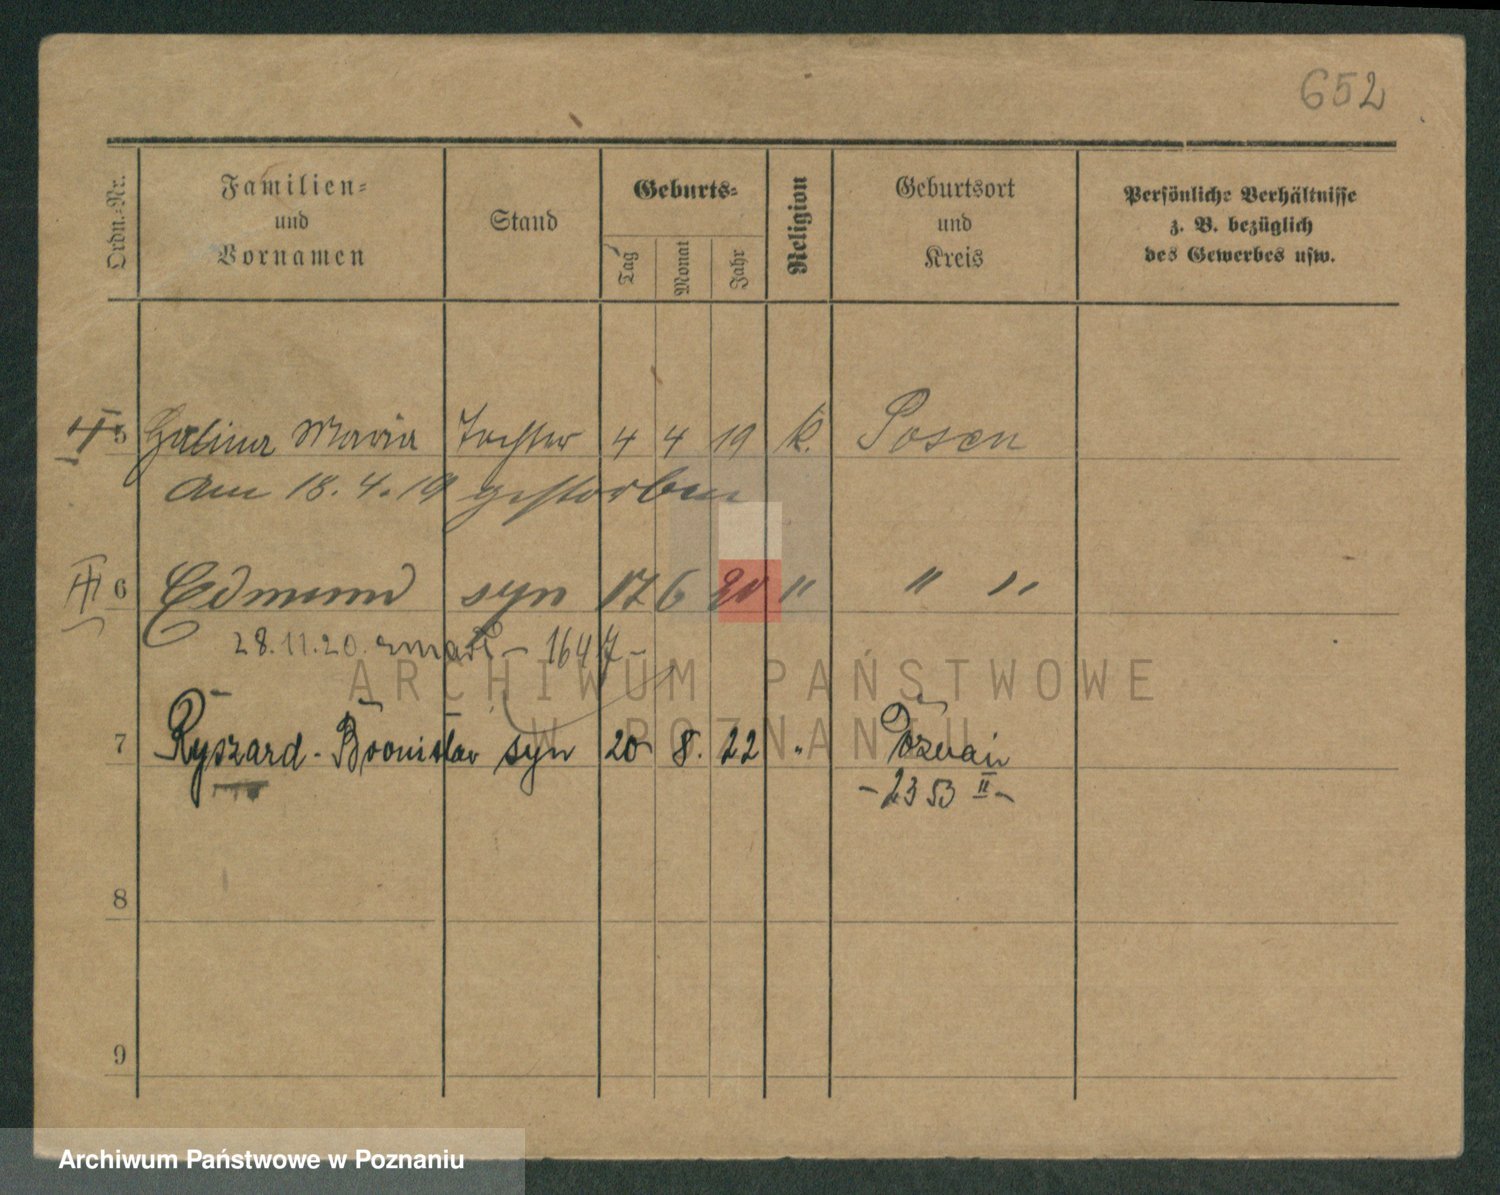 652
Ordn.-Nr.
Familien-
und
Vornamen
Stand
Geburts-
Tag
Monat
Jahr
Religion
Geburtsort
und
Kreis
Persönliche Verhältnisse
z. B. bezüglich
des Gewerbes usw.
5 Halina Maria Tochter 4 4 19 k. Posen
am 18. 4. 19 gestorben
6 Edmund syn 17 6 20 " " "
28.11.20. zmarł - 1647 -
7 Ryszard - Bronisław syn 20 8. 22 " Poznań
- 2353 II -
8
9
ARCHIWUM PAŃSTWOWE
W POZNANIU
Archiwum Państwowe w Poznaniu